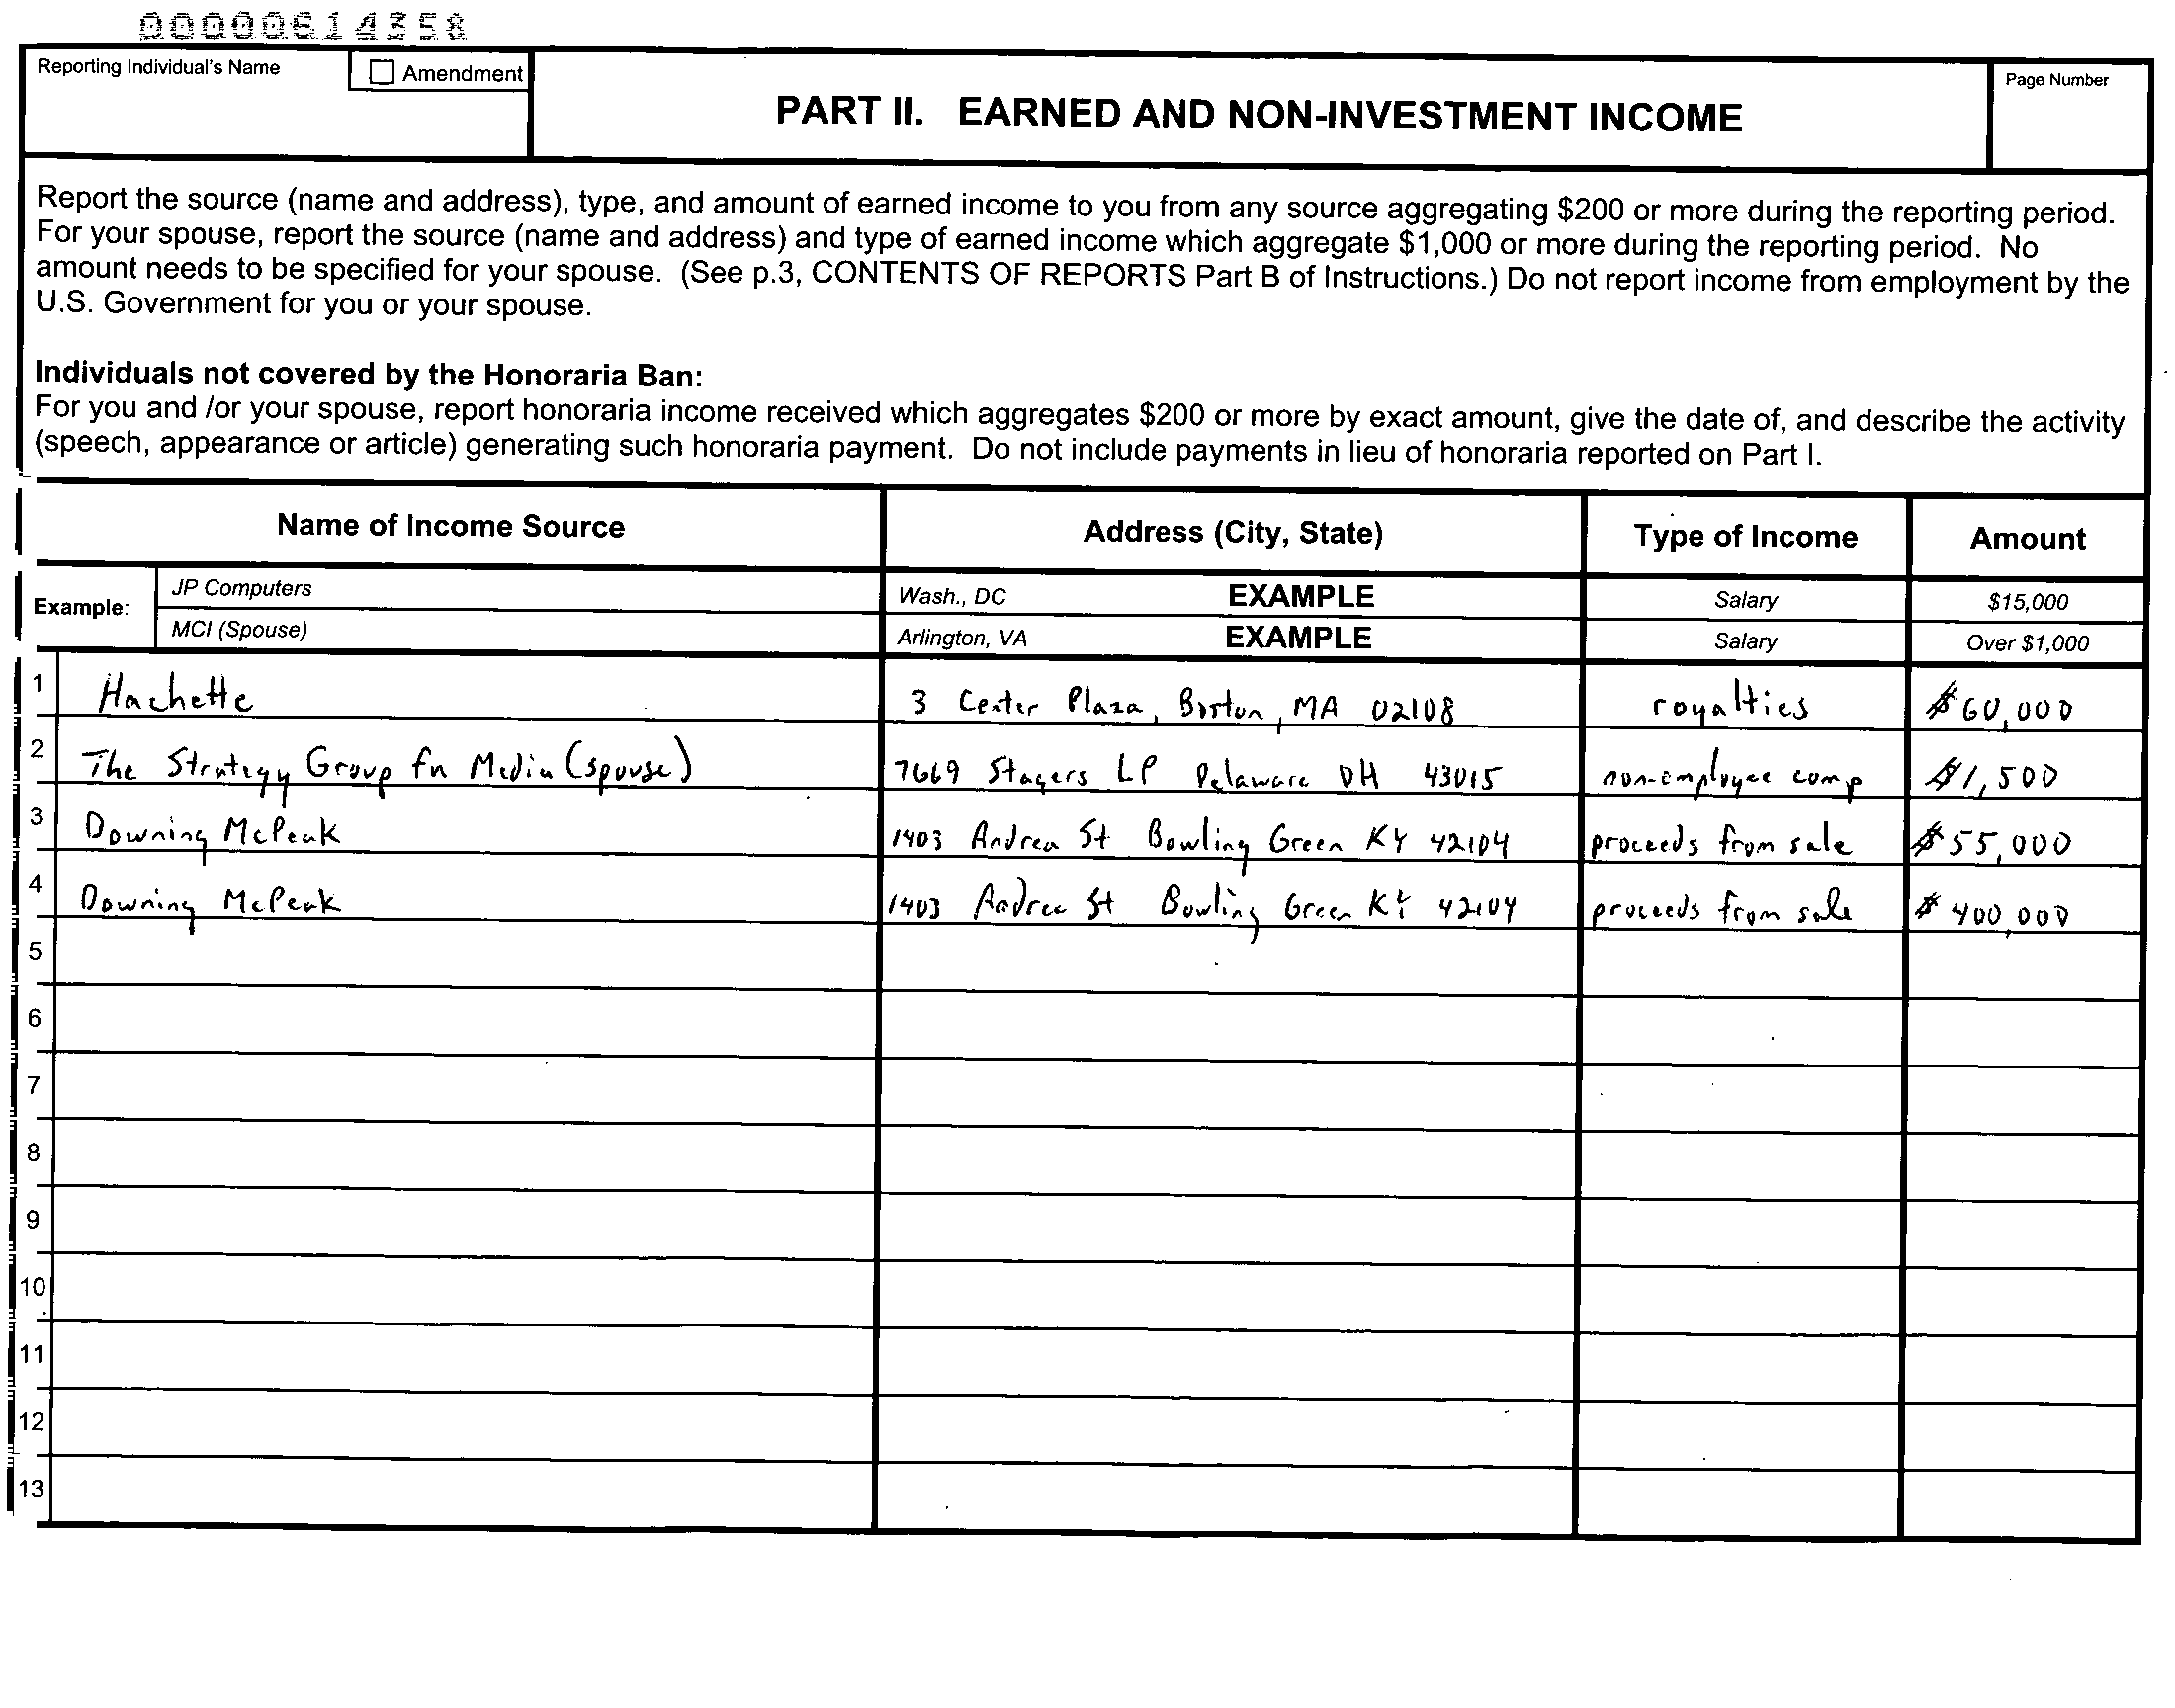 00000614358
Reporting Individual's Name
Amendment
PART II. EARNED AND NON-INVESTMENT INCOME
Page Number
Report the source (name and address), type, and amount of earned income to you from any source aggregating $200 or more during the reporting period.
For your spouse, report the source (name and address) and type of earned income which aggregate $1,000 or more during the reporting period. No
amount needs to be specified for your spouse. (See p.3, CONTENTS OF REPORTS Part B of Instructions.) Do not report income from employment by the
U.S. Government for you or your spouse.
Individuals not covered by the Honoraria Ban:
For you and /or your spouse, report honoraria income received which aggregates $200 or more by exact amount, give the date of, and describe the activity
(speech, appearance or article) generating such honoraria payment. Do not include payments in lieu of honoraria reported on Part I.
Name of Income Source Address (City, State) Type of Income Amount
Example:
JP Computers Wash., DC EXAMPLE Salary $15,000
MCI (Spouse) Arlington, VA EXAMPLE Salary Over $1,000
1 Hachette 3 Center Plaza, Boston, MA 02108 royalties $60,000
2 The Strategy Group for Media (spouse) 7669 Stagers LP Delaware OH 43015 non-employee comp $1,500
3 Downing McPeak 1403 Andrea St Bowling Green KY 42104 proceeds from sale $55,000
4 Downing McPeak 1403 Andrea St Bowling Green KY 42104 proceeds from sale $400,000
5
6
7
8
9
10
11
12
13